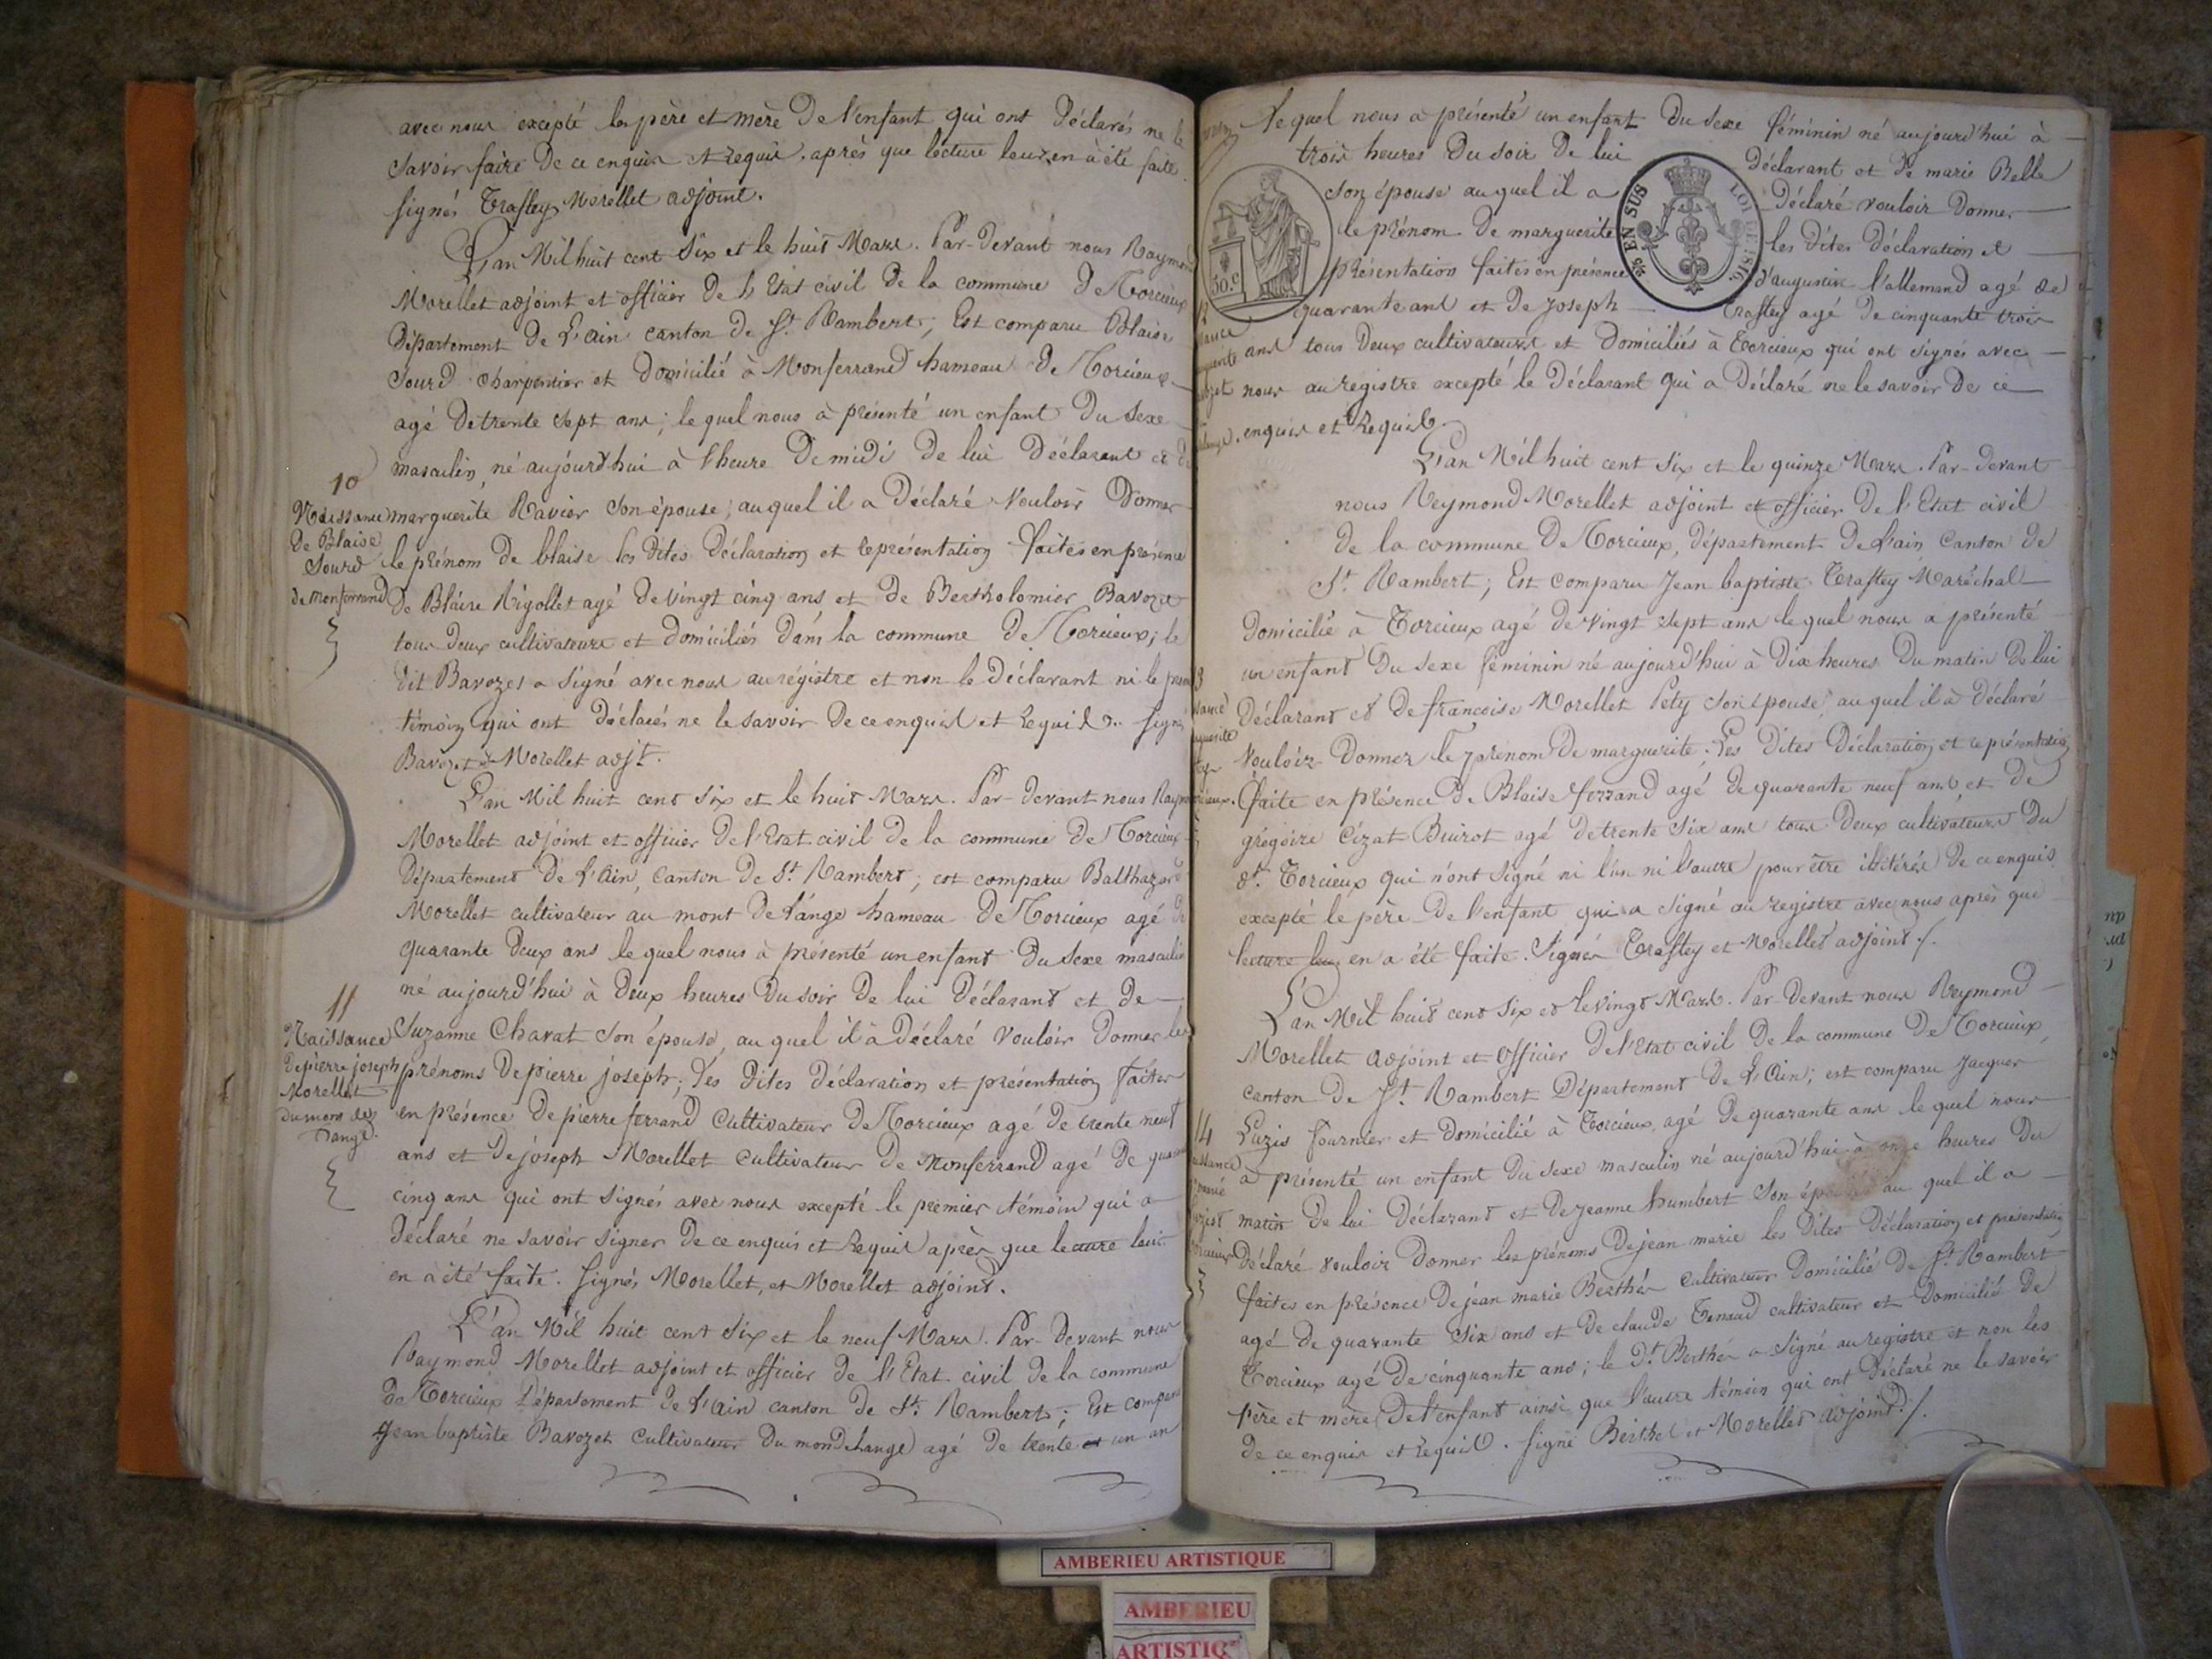 avec nous excepté les père et mère de l'enfant qui ont déclarés ne le
savoir faire de ce enquis et requis. après que lecture leur en à été faite
signés Trafley Morellet adjoint.
L'an Mil huit cent six et le huit Mars. Par-devant nous Raymond
Morellet adjoint et officier de l'Etat civil de la commune de Torcieux
Département de L'ain canton de St. Rambert; Est comparu Blaise
Sourd charpentier et domicilié à Monferrand hameau de Torcieux
agé de trente sept ans; le quel nous à présenté un enfant du sexe
masculin, né aujourd'hui à l'heure de midi de lui déclarant et de
10
Naissance
de Blaise
Sourd
de Monferrand
marguerite Ravier son épouse; au quel il a déclaré vouloir donner
le prénom de blaise les dites déclaration et représentation faites en présence
de Blaise Rigollet agé de vingt cinq ans et de Bertholomier Bavozet
tous deux cultivateurs et domiciliés dans la commune de Torcieux; le
dit Bavozet a signé avec nous au régistre et non le déclarant ni le
témoin qui ont déclarés ne le savoir de ce enquis et requis. signé
Bavozet Morellet adjt.
L'an Mil huit cent six et le huit Mars. Par-devant nous
Morellet adjoint et officier de l'Etat civil de la commune de Torcieux
Département de L'Ain, Canton de St. Rambert; est comparu Balthazard
Morellet cultivateur au mont de l'ange hameau de Torcieux agé de
quarante deux ans le quel nous à présenté un enfant du sexe masculin
né aujourd'hui à deux heures du soir de lui déclarant et de
11
Naissance
de pierre joseph
Morellet
du mont de
l'ange.
Suzanne Chavat son épouse, au quel il à déclaré vouloir donner les
prénoms de pierre joseph; les dites déclaration et présentation faites
en présence de pierre ferrand cultivateur de Torcieux agé de trente neuf
ans et de joseph Morellet cultivateur de Monferrand agé de
cinq ans qui ont signés avec nous excepté le premier témoin qui a
déclaré ne savoir signer de ce enquis et requis après que lecture leur
en à été faite. signés Morellet, et Morellet adjoint.
L'an Mil huit cent six et le neuf Mars. Par-devant nous
Raymond Morellet adjoint et officier de l'Etat civil de la commune
de Torcieux Département de L'Ain canton de St. Rambert; Est comparu
Jean baptiste Bavozet cultivateur du mondelange agé de trente un an
le quel nous a présenté un enfant du sexe féminin né aujourd'hui à
trois heures du soir de lui déclarant et de marie Belle
son épouse au quel il a déclaré vouloir donner
le prénom de marguerite les dites déclaration et
présentation faites en présence d'augustin l'allemand agé de
quarante ans et de joseph Trafley agé de cinquante trois
ans tous deux cultivateurs et domiciliés à Torcieux qui ont signés avec
nous au registre excepté le déclarant qui a déclaré ne le savoir de ce
enquis et requis.
50.C
25 EN SUS
L'an Mil huit cent six et le quinze Mars. Par-devant
nous Reymond Morellet adjoint et officier de l'Etat civil
de la commune de Torcieux, département de L'ain Canton de
St. Rambert; Est comparu Jean baptiste Trafley Maréchal
domicilié à Torcieux agé de vingt sept ans le quel nous a présenté
un enfant du sexe féminin né aujourd'hui à dix heures du matin de lui
déclarant et de francoise Morellet Pety son épouse, au quel il à déclaré
vouloir donner le prénom de marguerite; les dites déclaration et représentation
faite en présence de Blaise ferrand agé de quarante neuf ans et de
grégoire Cizat Buirot agé de trente six ans tous deux cultivateurs du
dt. Torcieux qui n'ont signé ni l'un ni l'autre pour être illitérés de ce enquis
excepté le père de l'enfant qui a signé au registre avec nous après que
lecture leur en a été faite. Signés Trafley et Morellet adjoint ./.
L'an Mil huit cent six et le vingt Mars. Par-devant nous Reymond
Morellet adjoint et officier de l'Etat civil de la commune de Torcieux,
canton de St. Rambert Département de L'Ain; est comparu Jacques
14
Luzis fournier et domicilié à Torcieux, agé de quarante ans le quel nous
a présenté un enfant du sexe masculin né aujourd'hui à onze heures du
matin de lui déclarant et de jeanne humbert son épouse au quel il a
déclaré vouloir donner les prénoms de jean marie les dites déclaration et présentation
faites en présence de jean marie Berthér cultivateur domicilié de St. Rambert
agé de quarante six ans et de claude Tenaud cultivateur et domicilié de
Torcieux agé de cinquante ans; le dt. Berthér a signé au registre et non les
père et mère de l'enfant ainsi que l'autre témoin qui ont déclaré ne le savoir
de ce enquis et requis. signé Berthet et Morellet adjoint ./.
AMBERIEU ARTISTIQUE
AMBERIEU
ARTISTIQ